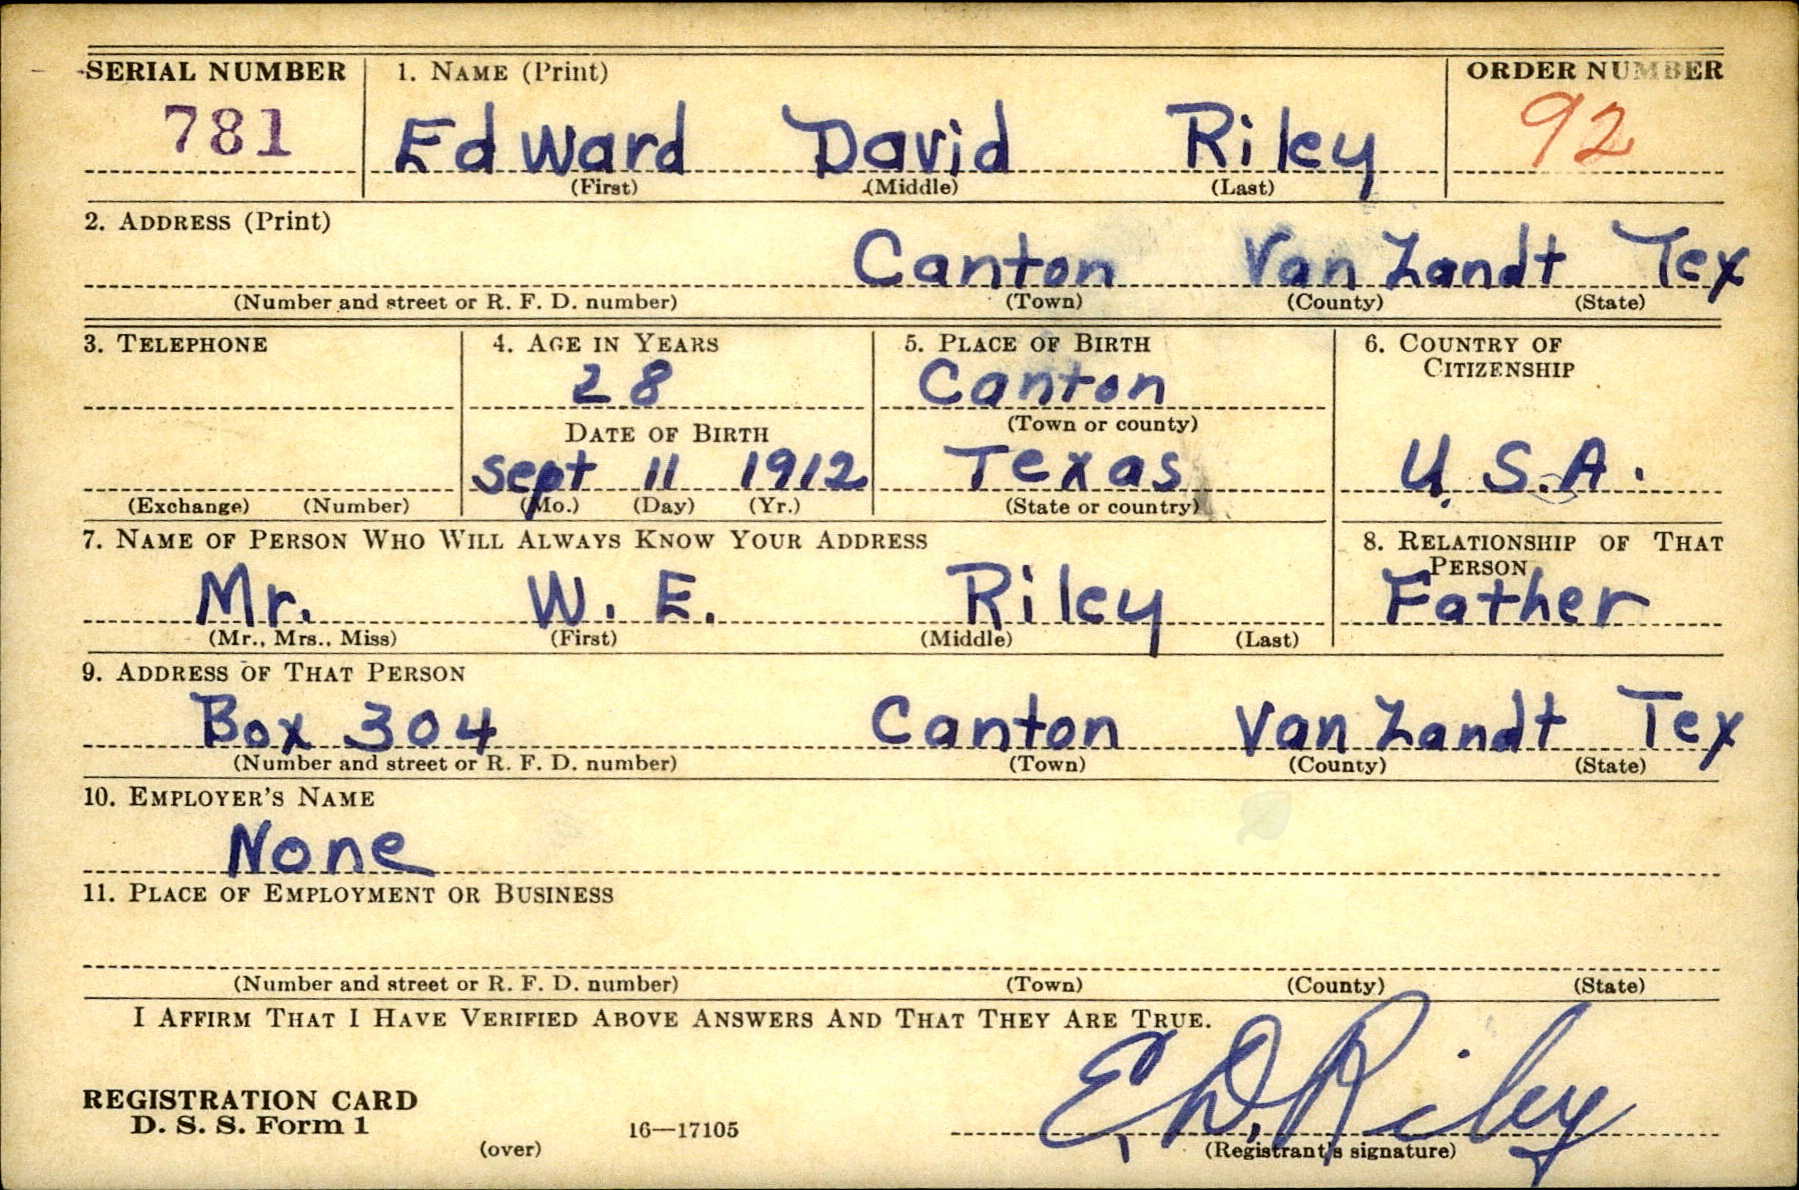 SERIAL NUMBER 1. NAME (Print) ORDER NUMBER
781 Edward David Riley 92
(First) (Middle) (Last)
2. ADDRESS (Print)
Canton Van Zandt Tex
(Number and street or R. F. D. number) (Town) (County) (State)
3. TELEPHONE 4. AGE IN YEARS 5. PLACE OF BIRTH 6. COUNTRY OF
CITIZENSHIP
28 Canton
DATE OF BIRTH (Town or county)
Sept 11 1912 Texas U.S.A.
(Exchange) (Number) (Mo.) (Day) (Yr.) (State or country)
7. NAME OF PERSON WHO WILL ALWAYS KNOW YOUR ADDRESS 8. RELATIONSHIP OF THAT
PERSON
Mr. W. E. Riley Father
(Mr., Mrs., Miss) (First) (Middle) (Last)
9. ADDRESS OF THAT PERSON
Box 304 Canton Van Zandt Tex
(Number and street or R. F. D. number) (Town) (County) (State)
10. EMPLOYER'S NAME
None
11. PLACE OF EMPLOYMENT OR BUSINESS
(Number and street or R. F. D. number) (Town) (County) (State)
I AFFIRM THAT I HAVE VERIFIED ABOVE ANSWERS AND THAT THEY ARE TRUE.
REGISTRATION CARD
D. S. S. Form 1 16—17105 E. D. Riley
(over) (Registrant's signature)